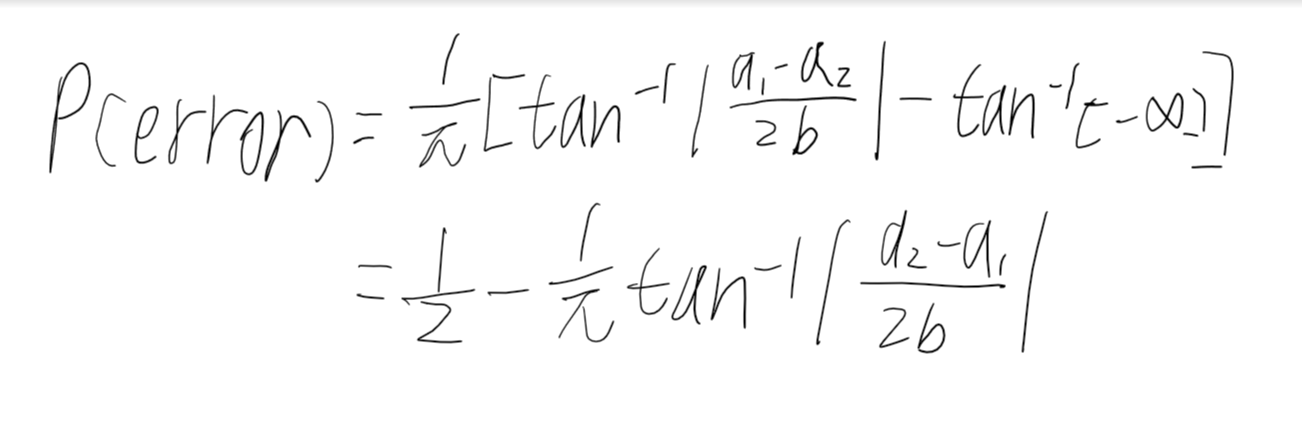 P(error) = \frac{1}{\pi}[tan^{-1}|\frac{a_1-a_2}{2b}| - tan^{-1}[-∞]]
= \frac{1}{2} - \frac{1}{\pi} tan^{-1}|\frac{a_2-a_1}{2b}|